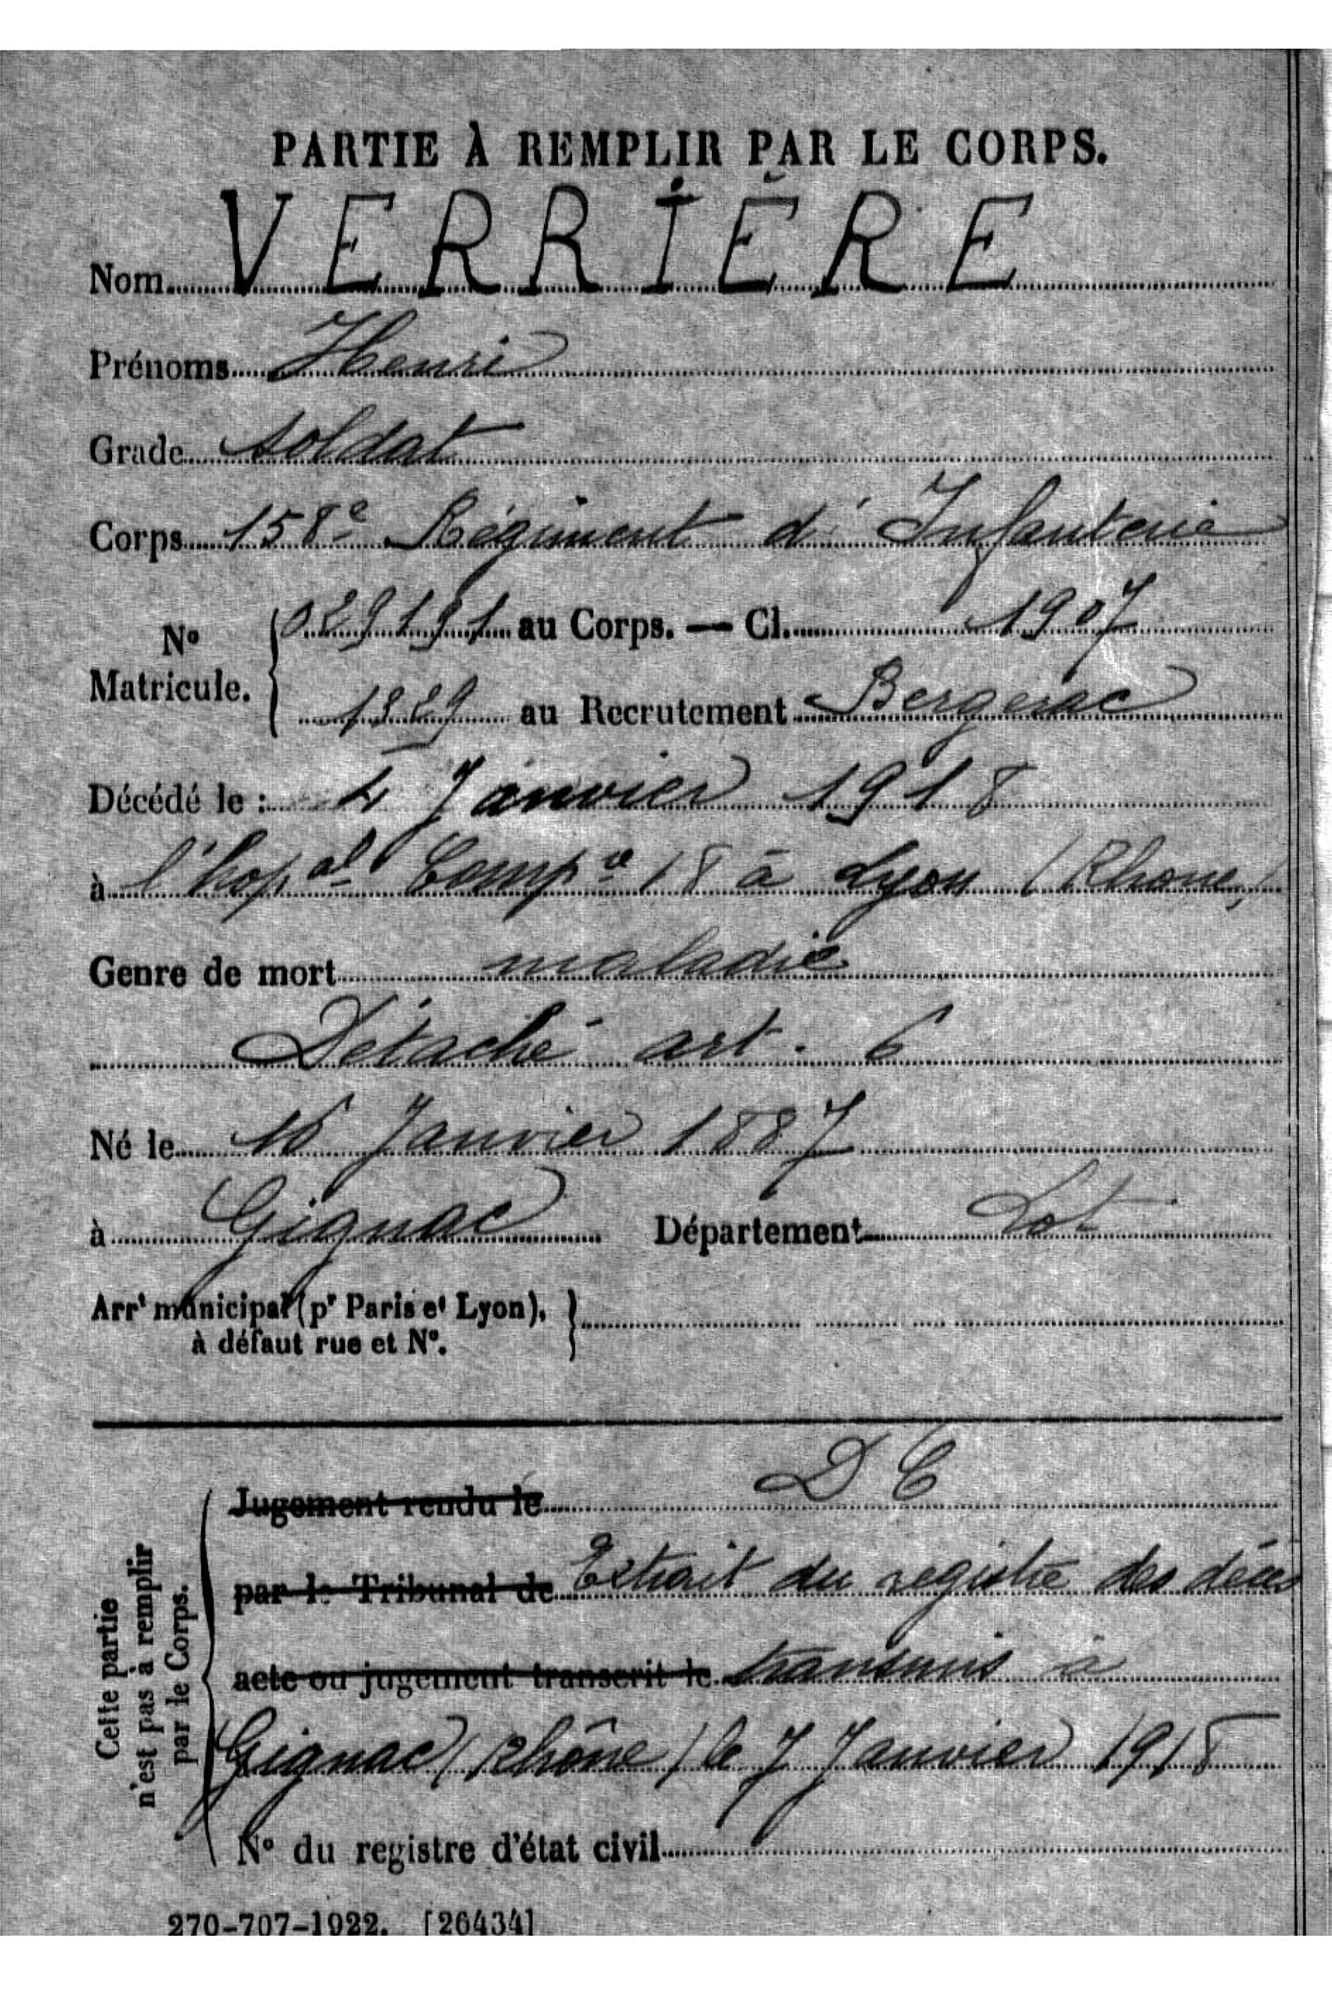 PARTIE À REMPLIR PAR LE CORPS.
Nom VERRIÈRE
Prénoms Henri
Grade soldat
Corps 158e Régiment d'Infanterie
No Matricule. { 029191 au Corps. — Cl. 1907
1329 au Recrutement Bergerac
Décédé le : 4 Janvier 1918
à l'hopal Compre 18 à Lyon (Rhone)
Genre de mort maladie
Détaché art. 6
Né le 16 Janvier 1887
à Gignac Département Lot
Arrt municipal (pr Paris et Lyon),
à défaut rue et No.
Cette partie
n'est pas à remplir
par le Corps.
Jugement rendu le D C
par le Tribunal de Extrait du registre des décès
acte ou jugement transcrit le transmis à
Gignac (Rhône) le 7 Janvier 1918
No du registre d'état civil
270-707-1922. [26434]